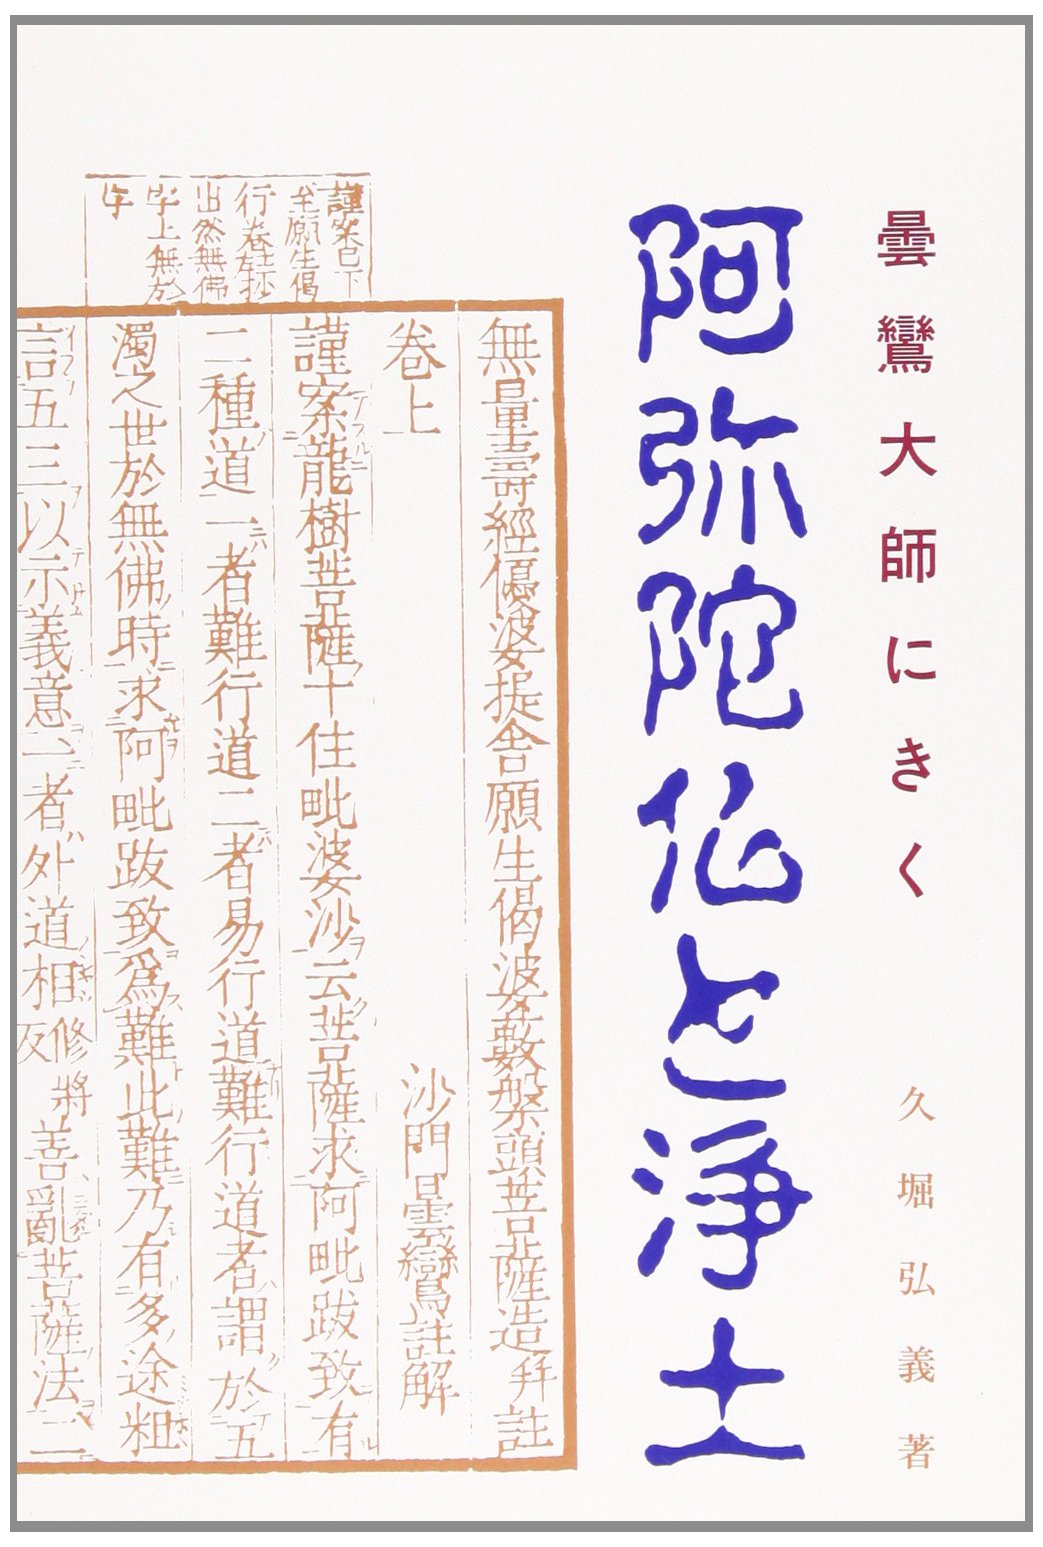 曇鸞大師にきく
久堀弘義著
阿弥陀仏と浄土
無量壽經優婆提舍願生偈婆藪槃頭菩薩造幷註
卷上
沙門曇鸞註解
謹案龍樹菩薩十住毗婆沙云菩薩求阿毗跋致有
二種道一者難行道二者易行道難行道者謂於五
濁之世於無佛時求阿毗跋致爲難此難乃有多途粗
言五三以示義意一者外道相修將善亂菩薩法二
謹案已下
至願生偈
行卷
出然無佛
字上無於
字